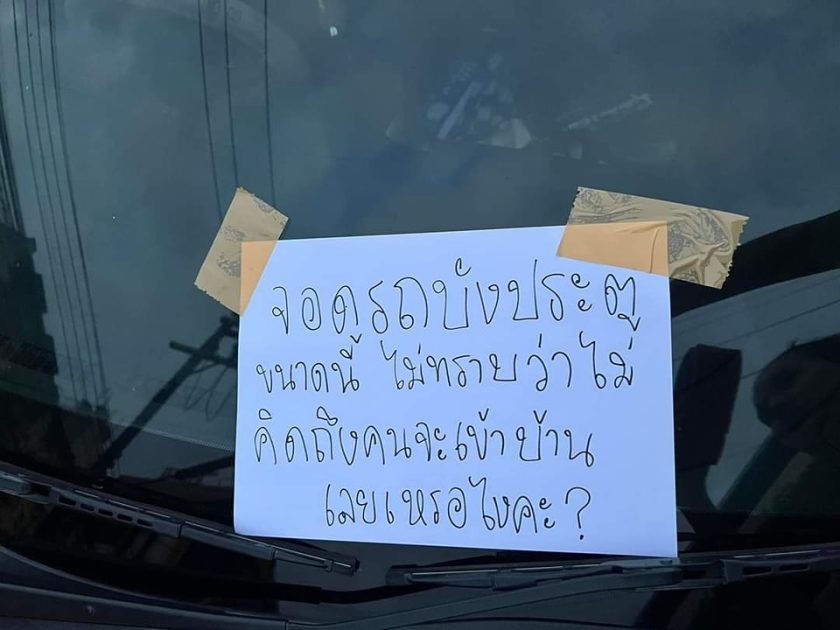 จอดรถบังประตู
ขนาดนี้ ไม่ทราบว่าไม่
คิดถึงคนจะเข้าบ้าน
เลยเหรอไงคะ?